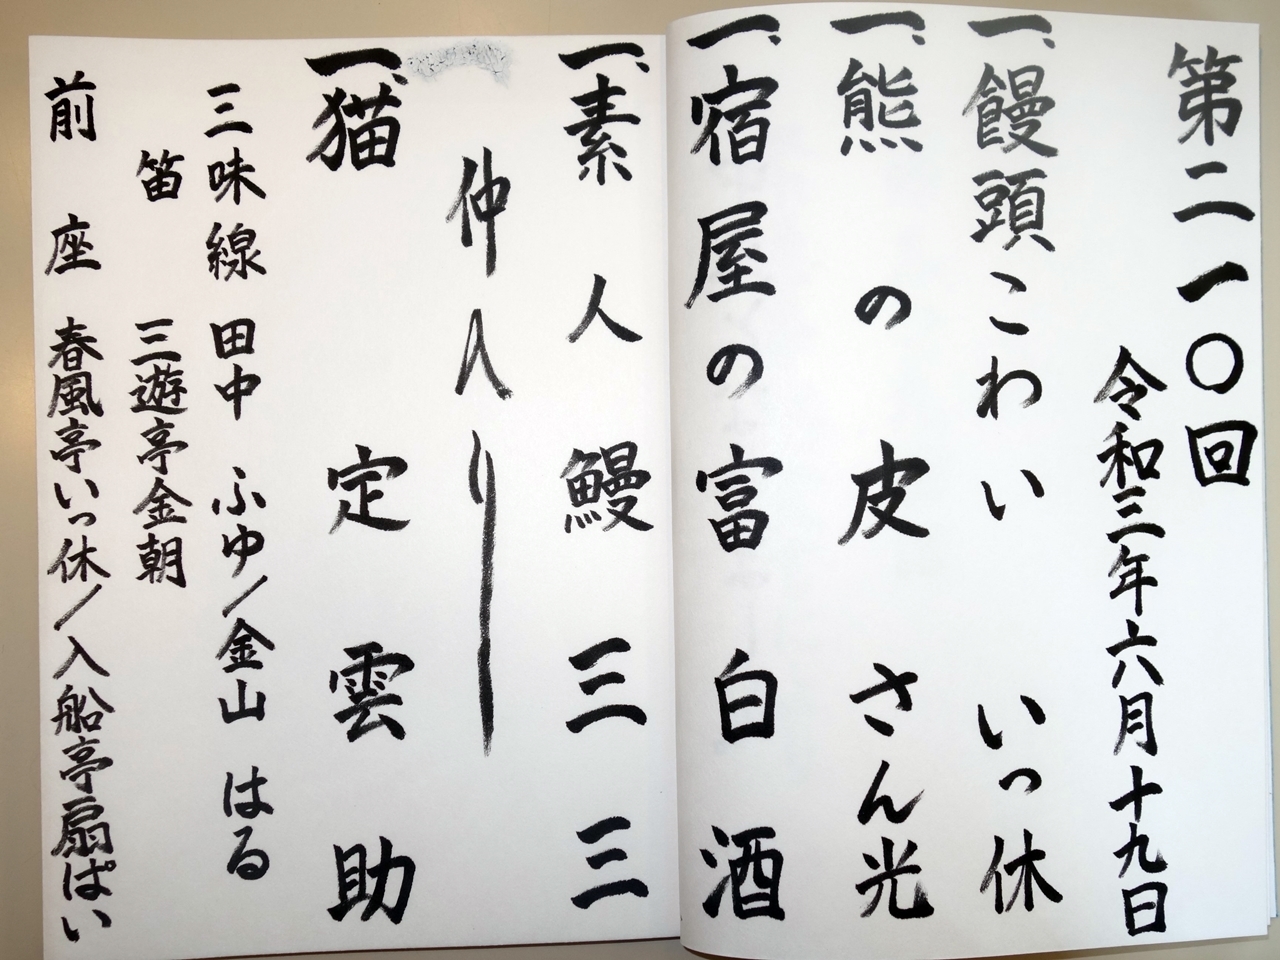 第二一〇回
令和三年六月十九日
一、饅頭こわい いっ休
一、熊の皮 さん光
一、宿屋の富 白酒
一、素人鰻 三三
仲入り
一、猫定 雲助
三味線 田中 ふゆ/金山 はる
笛 三遊亭金朝
前座 春風亭いっ休/入船亭扇ぱい